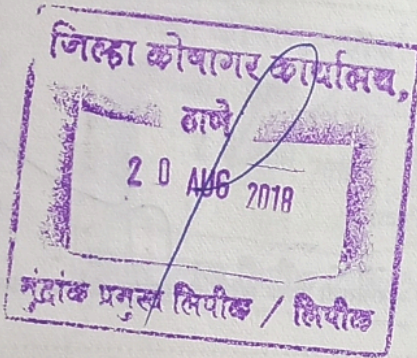 जिल्हा कोषागर कार्यालय,
ठाणे
20 AUG 2018
मुंद्रांक प्रमुख लिपीक / लिपीक